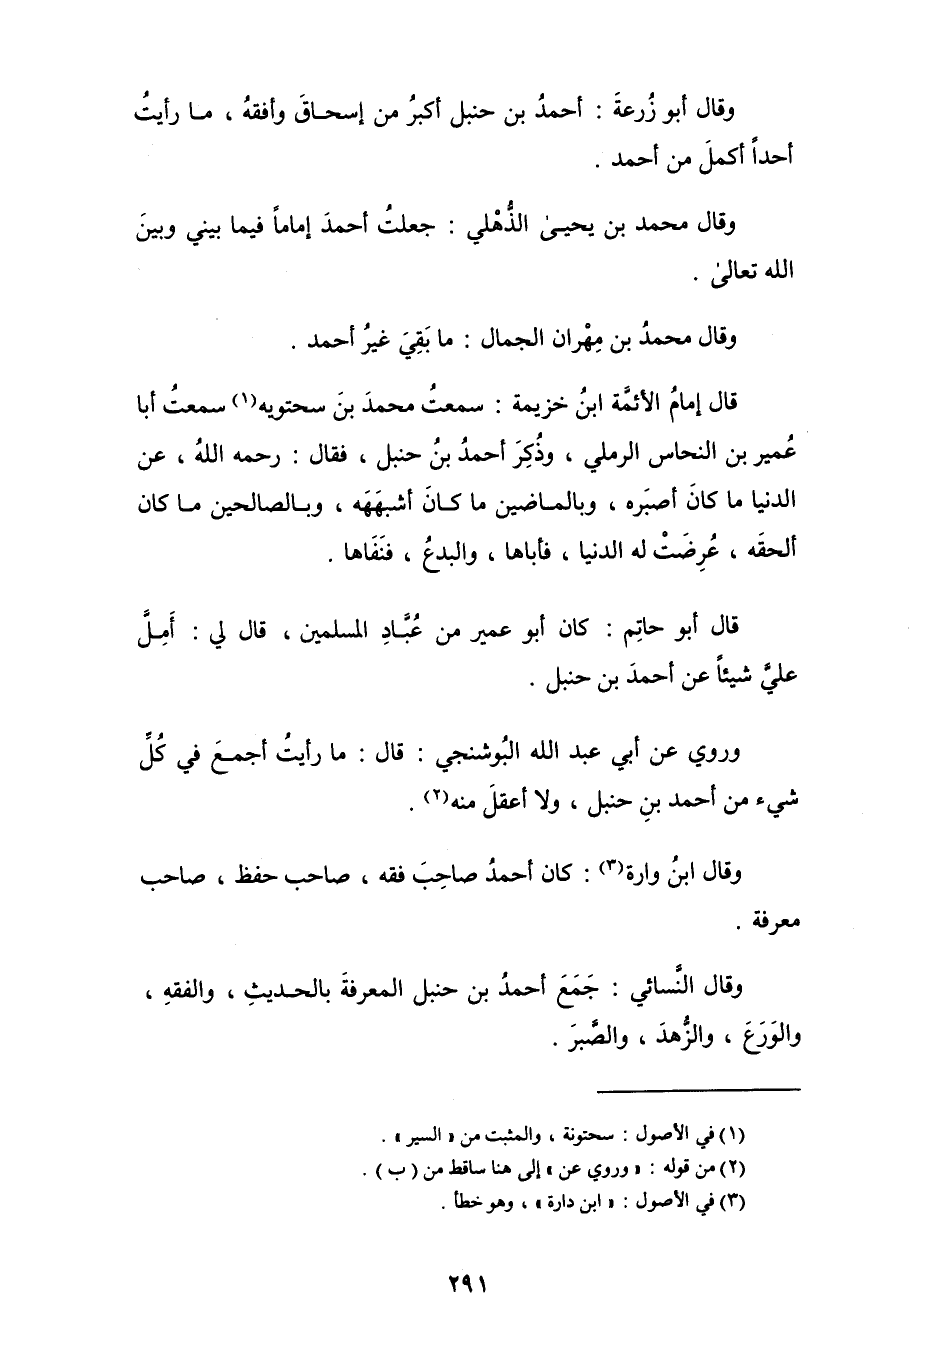 وقال أبو زُرعةَ : أحمدُ بن حنبل أكبرُ من إسحـاقَ وأفقهُ ، مـا رأيتُ
أحداً أكملَ من أحمد .
وقال محمد بن يحيـىٰ الذُّهْلي : جعلتُ أحمدَ إماماً فيما بيني وبينَ
الله تعالىٰ .
وقال محمدُ بن مِهْران الجمال : ما بَقِيَ غيرُ أحمد .
قال إمامُ الأئمَّة ابنُ خزيمة : سمعتُ محمدَ بنَ سحتويه(١) سمعتُ أبا
عُمير بن النحاس الرملي ، وذُكِرَ أحمدُ بنُ حنبل ، فقال : رحمه اللهُ ، عن
الدنيا ما كانَ أصبَره ، وبالمـاضين ما كـانَ أشبهَهَه ، وبـالصالحين مـا كان
ألحقَه ، عُرِضَتْ له الدنيا ، فأباها ، والبدعُ ، فنَفَاها .
قال أبو حاتِم : كان أبو عمير من عُبَّـادِ المسلمين ، قال لي : أَمِـلَّ
عليَّ شيئاً عن أحمدَ بن حنبل .
وروي عن أبي عبد الله البُوشنجي : قال : ما رأيتُ أجمـعَ في كُلِّ
شيء من أحمد بنِ حنبل ، ولا أعقلَ منه(٢) .
وقال ابنُ وارة(٣) : كان أحمدُ صاحِبَ فقه ، صاحب حفظ ، صاحب
معرفة .
وقال النَّسائي : جَمَعَ أحمدُ بن حنبل المعرفةَ بالحـديثِ ، والفقهِ ،
والوَرَعَ ، والزُّهدَ ، والصَّبرَ .
(١) في الأصول : سحتونة ، والمثبت من « السير » .
(٢) من قوله : « وروي عن » إلى هنا ساقط من ( ب ) .
(٣) في الأصول : « ابن دارة » ، وهو خطأ .
٢٩١